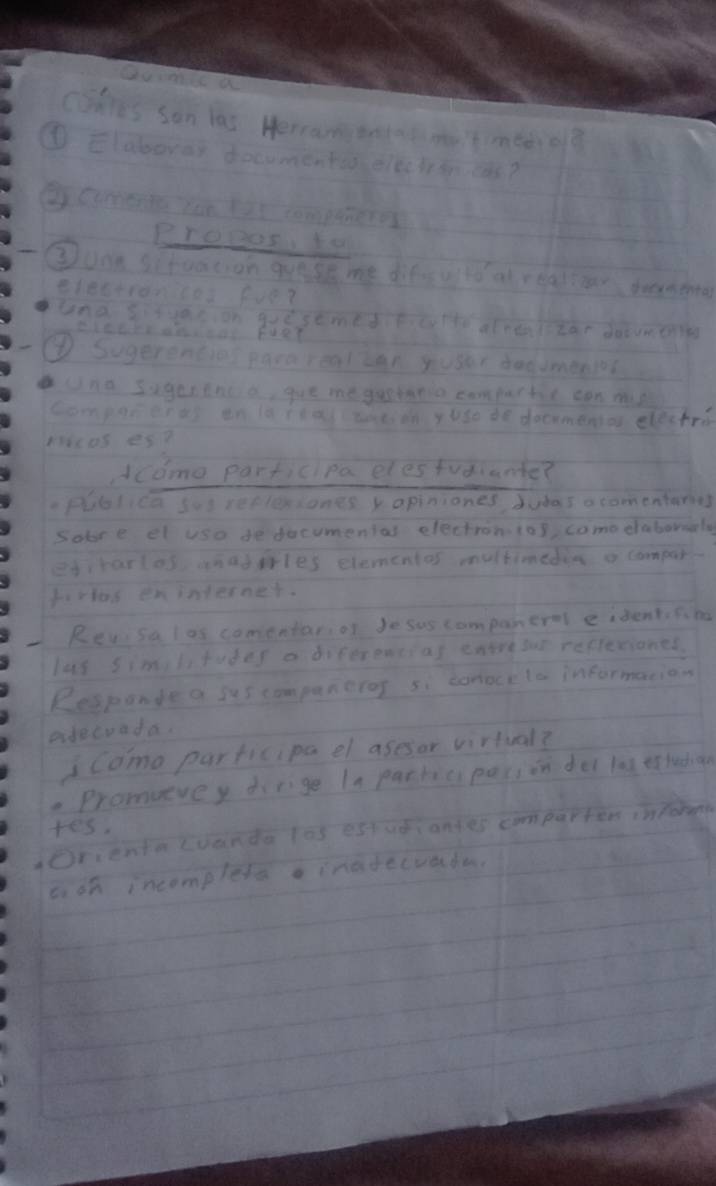 Química
Cuáles son las Herramientas multimedia?
① Elaborar documentos electrónicos?
② Comenta con tus compañeros
Proposito
- ③ Una situación que se me dificulto al realizar documentos
electronicos fue?
• una situacion que se me dificulto al realizar documentos
electronicos fue?
- ④ Sugerencias para realizar y usar documentos
• una sugerencia, que me gustaria compartir con mis
compañeros en la realización y uso de documentos electró
nicos es?
¿Cómo participa el estudiante?
• Pública sus reflexiones y opiniones, dudas o comentarios
sobre el uso de documentos electronicos, como elaborarlos
editarlos, añadirles elementos multimedia o compar-
tirlos en internet.
- Revisa los comentarios de sus compañeros e identifica
las similitudes o diferencias entre sus reflexiones.
Responde a sus compañeros si conoce la información
adecuada.
¿Cómo participa el asesor virtual?
• Promueve y dirige la participación del los estudian
tes.
• Orienta cuando los estudiantes comparten informa
ción incompleta o inadecuada.